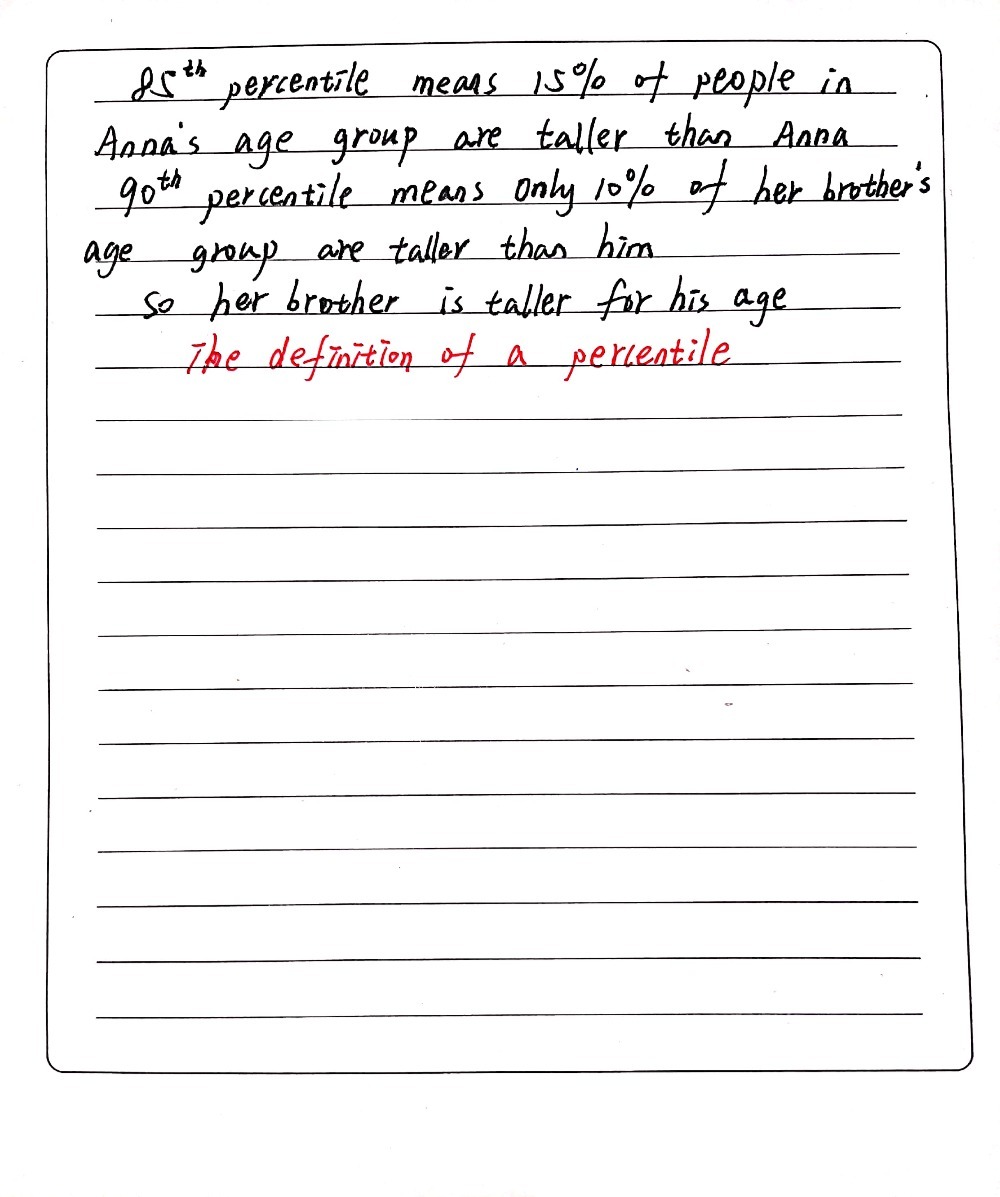 85th percentile means 15% of people in
Anna's age group are taller than Anna
90th percentile means only 10% of her brother's
age group are taller than him
so her brother is taller for his age
The definition of a percentile